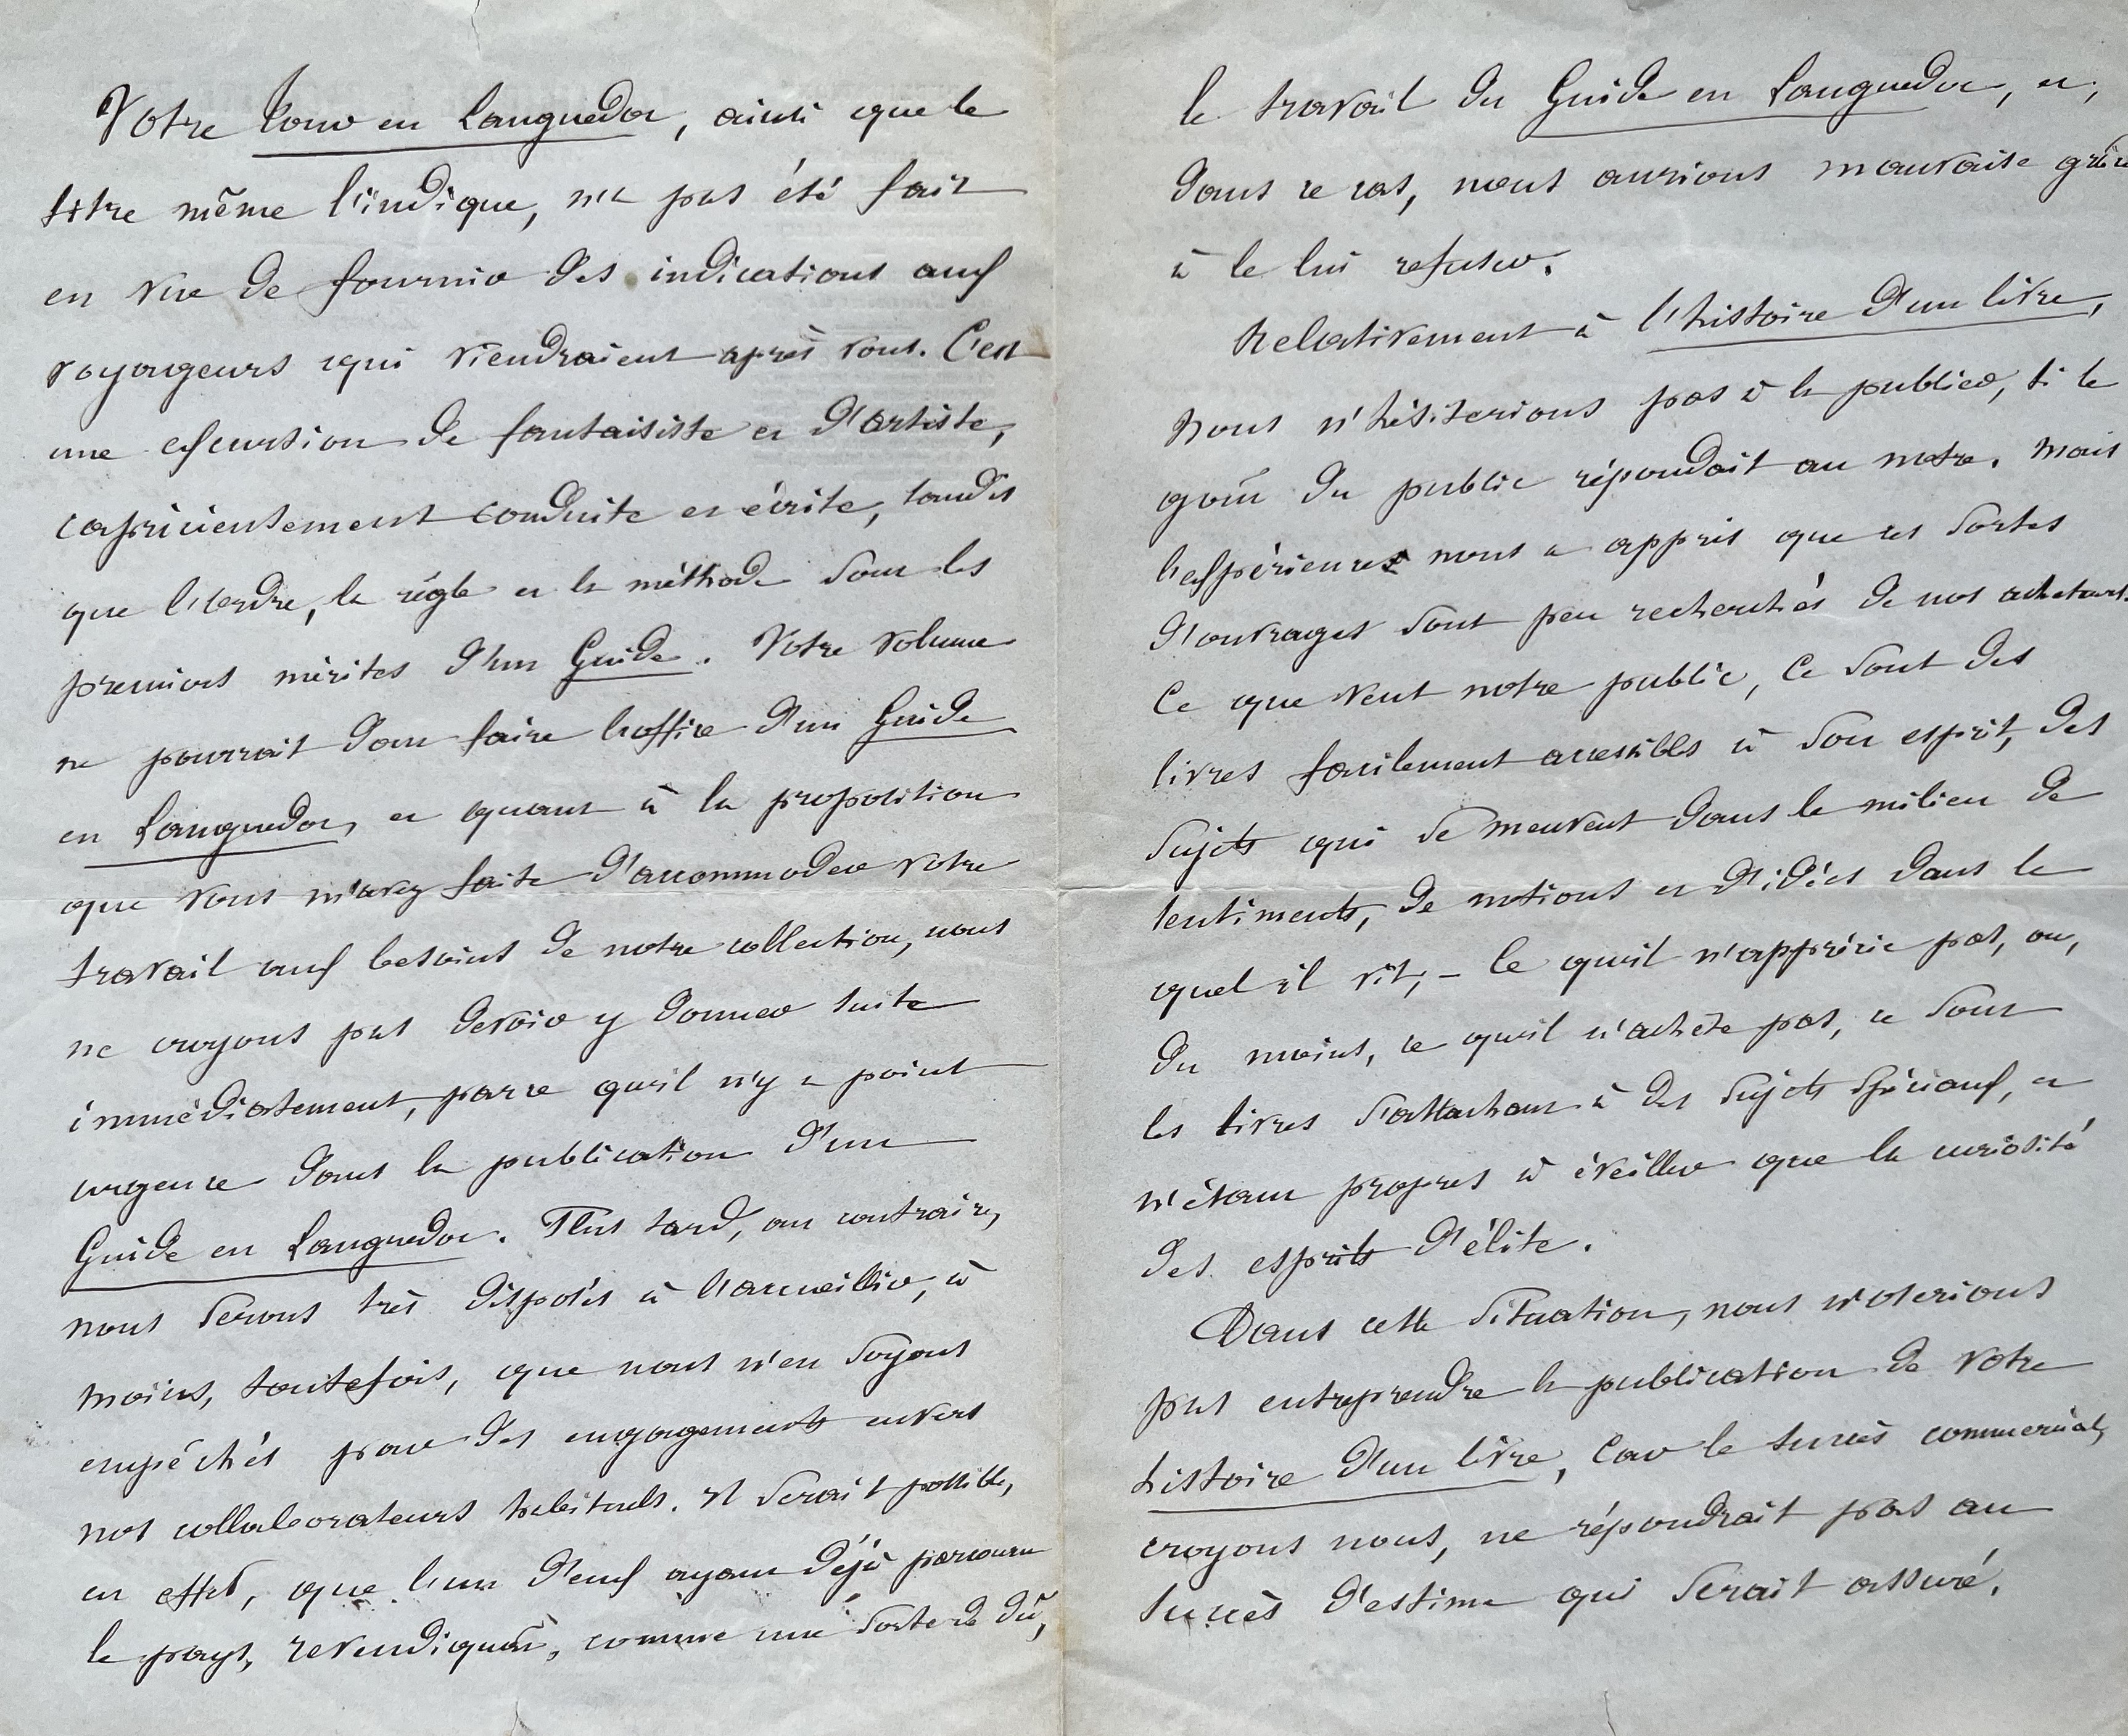 Votre Tour en Languedoc, ainsi que le
titre même l'indique, n'a pas été fait
en vue de fournir des indications aux
voyageurs qui viendraient après vous. C'est
une excursion de fantaisiste et d'artiste,
capricieusement conduite et écrite, tandis
que l'ordre, la règle et la méthode sont les
premiers mérites d'un Guide. Votre volume
ne pourrait donc faire l'office d'un Guide
en Languedoc, et quant à la proposition
que vous m'avez faite d'accommoder votre
travail aux besoins de notre collection, nous
ne croyons pas devoir y donner suite
immédiatement, parce qu'il n'y a point
urgence dans la publication d'un
Guide en Languedoc. Plus tard, au contraire,
nous serons très disposés à l'accueillir, à
moins, toutefois, que nous n'en soyons
empêchés par des engagements envers
nos collaborateurs habituels. Il serait possible,
en effet, que l'un d'eux ayant déjà parcouru
le pays, revendiquât, comme une sorte de dû,
le travail du Guide en Languedoc, et,
dans ce cas, nous aurions mauvaise grâce
à le lui refuser.
Relativement à l'histoire d'un livre,
nous n'hésiterions pas à la publier, si le
goût du public répondait au notre. Mais
l'expérience nous a appris que ces sortes
d'ouvrages sont peu recherchés de nos acheteurs.
Ce que veut notre public, ce sont des
livres facilement accessibles à son esprit, des
sujets qui se meuvent dans le milieu de
sentiments, de notions et d'idées dans le
quel il vit; - Ce qu'il n'apprécie pas, ou,
du moins, ce qu'il n'achète pas, ce sont
les livres s'attachant à des sujets spéciaux, et
n'étant propres à éveiller que la curiosité
des esprits d'élite.
Dans cette situation, nous n'oserions
pas entreprendre la publication de votre
histoire d'un livre, car le succès commercial,
croyons nous, ne répondrait pas au
succès d'estime qui serait assuré.